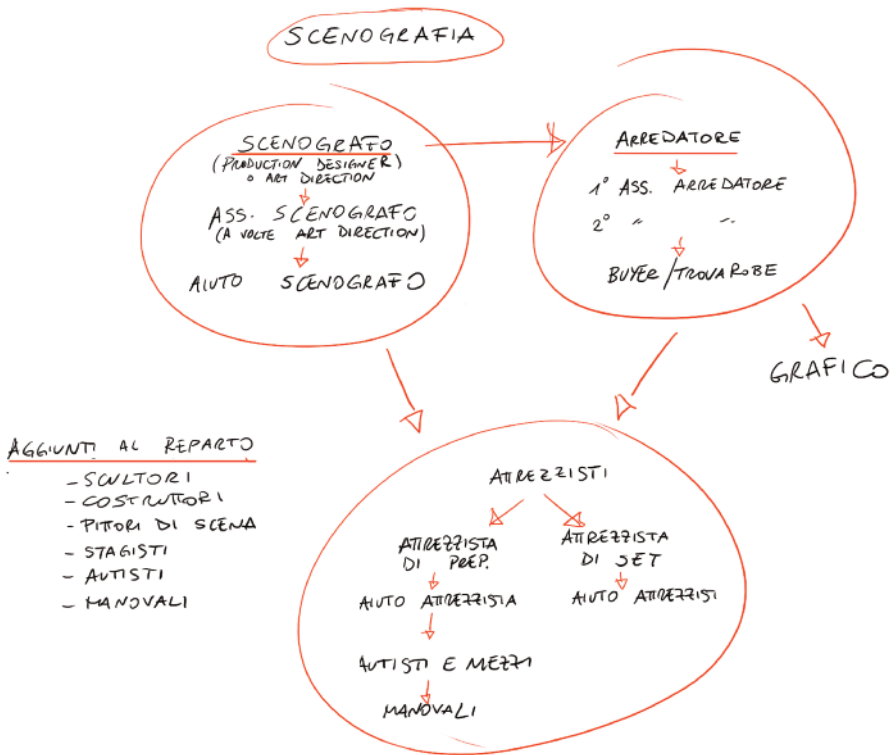 SCENOGRAFIA
SCENOGRAFO
(PRODUCTION DESIGNER)
O ART DIRECTION
ASS. SCENOGRAFO
(A VOLTE ART DIRECTION)
AIUTO SCENOGRAFO
ARREDATORE
1° ASS. ARREDATORE
2° " "
BUYER/TROVAROBE
GRAFICO
AGGIUNTI AL REPARTO
- SCULTORI
- COSTRUTTORI
- PITTORI DI SCENA
- STAGISTI
- AUTISTI
- MANOVALI
ATTREZZISTI
ATTREZZISTA
DI PREP.
AIUTO ATTREZZISTA
AUTISTI E MEZZI
MANOVALI
ATTREZZISTA
DI SET
AIUTO ATTREZZISTI